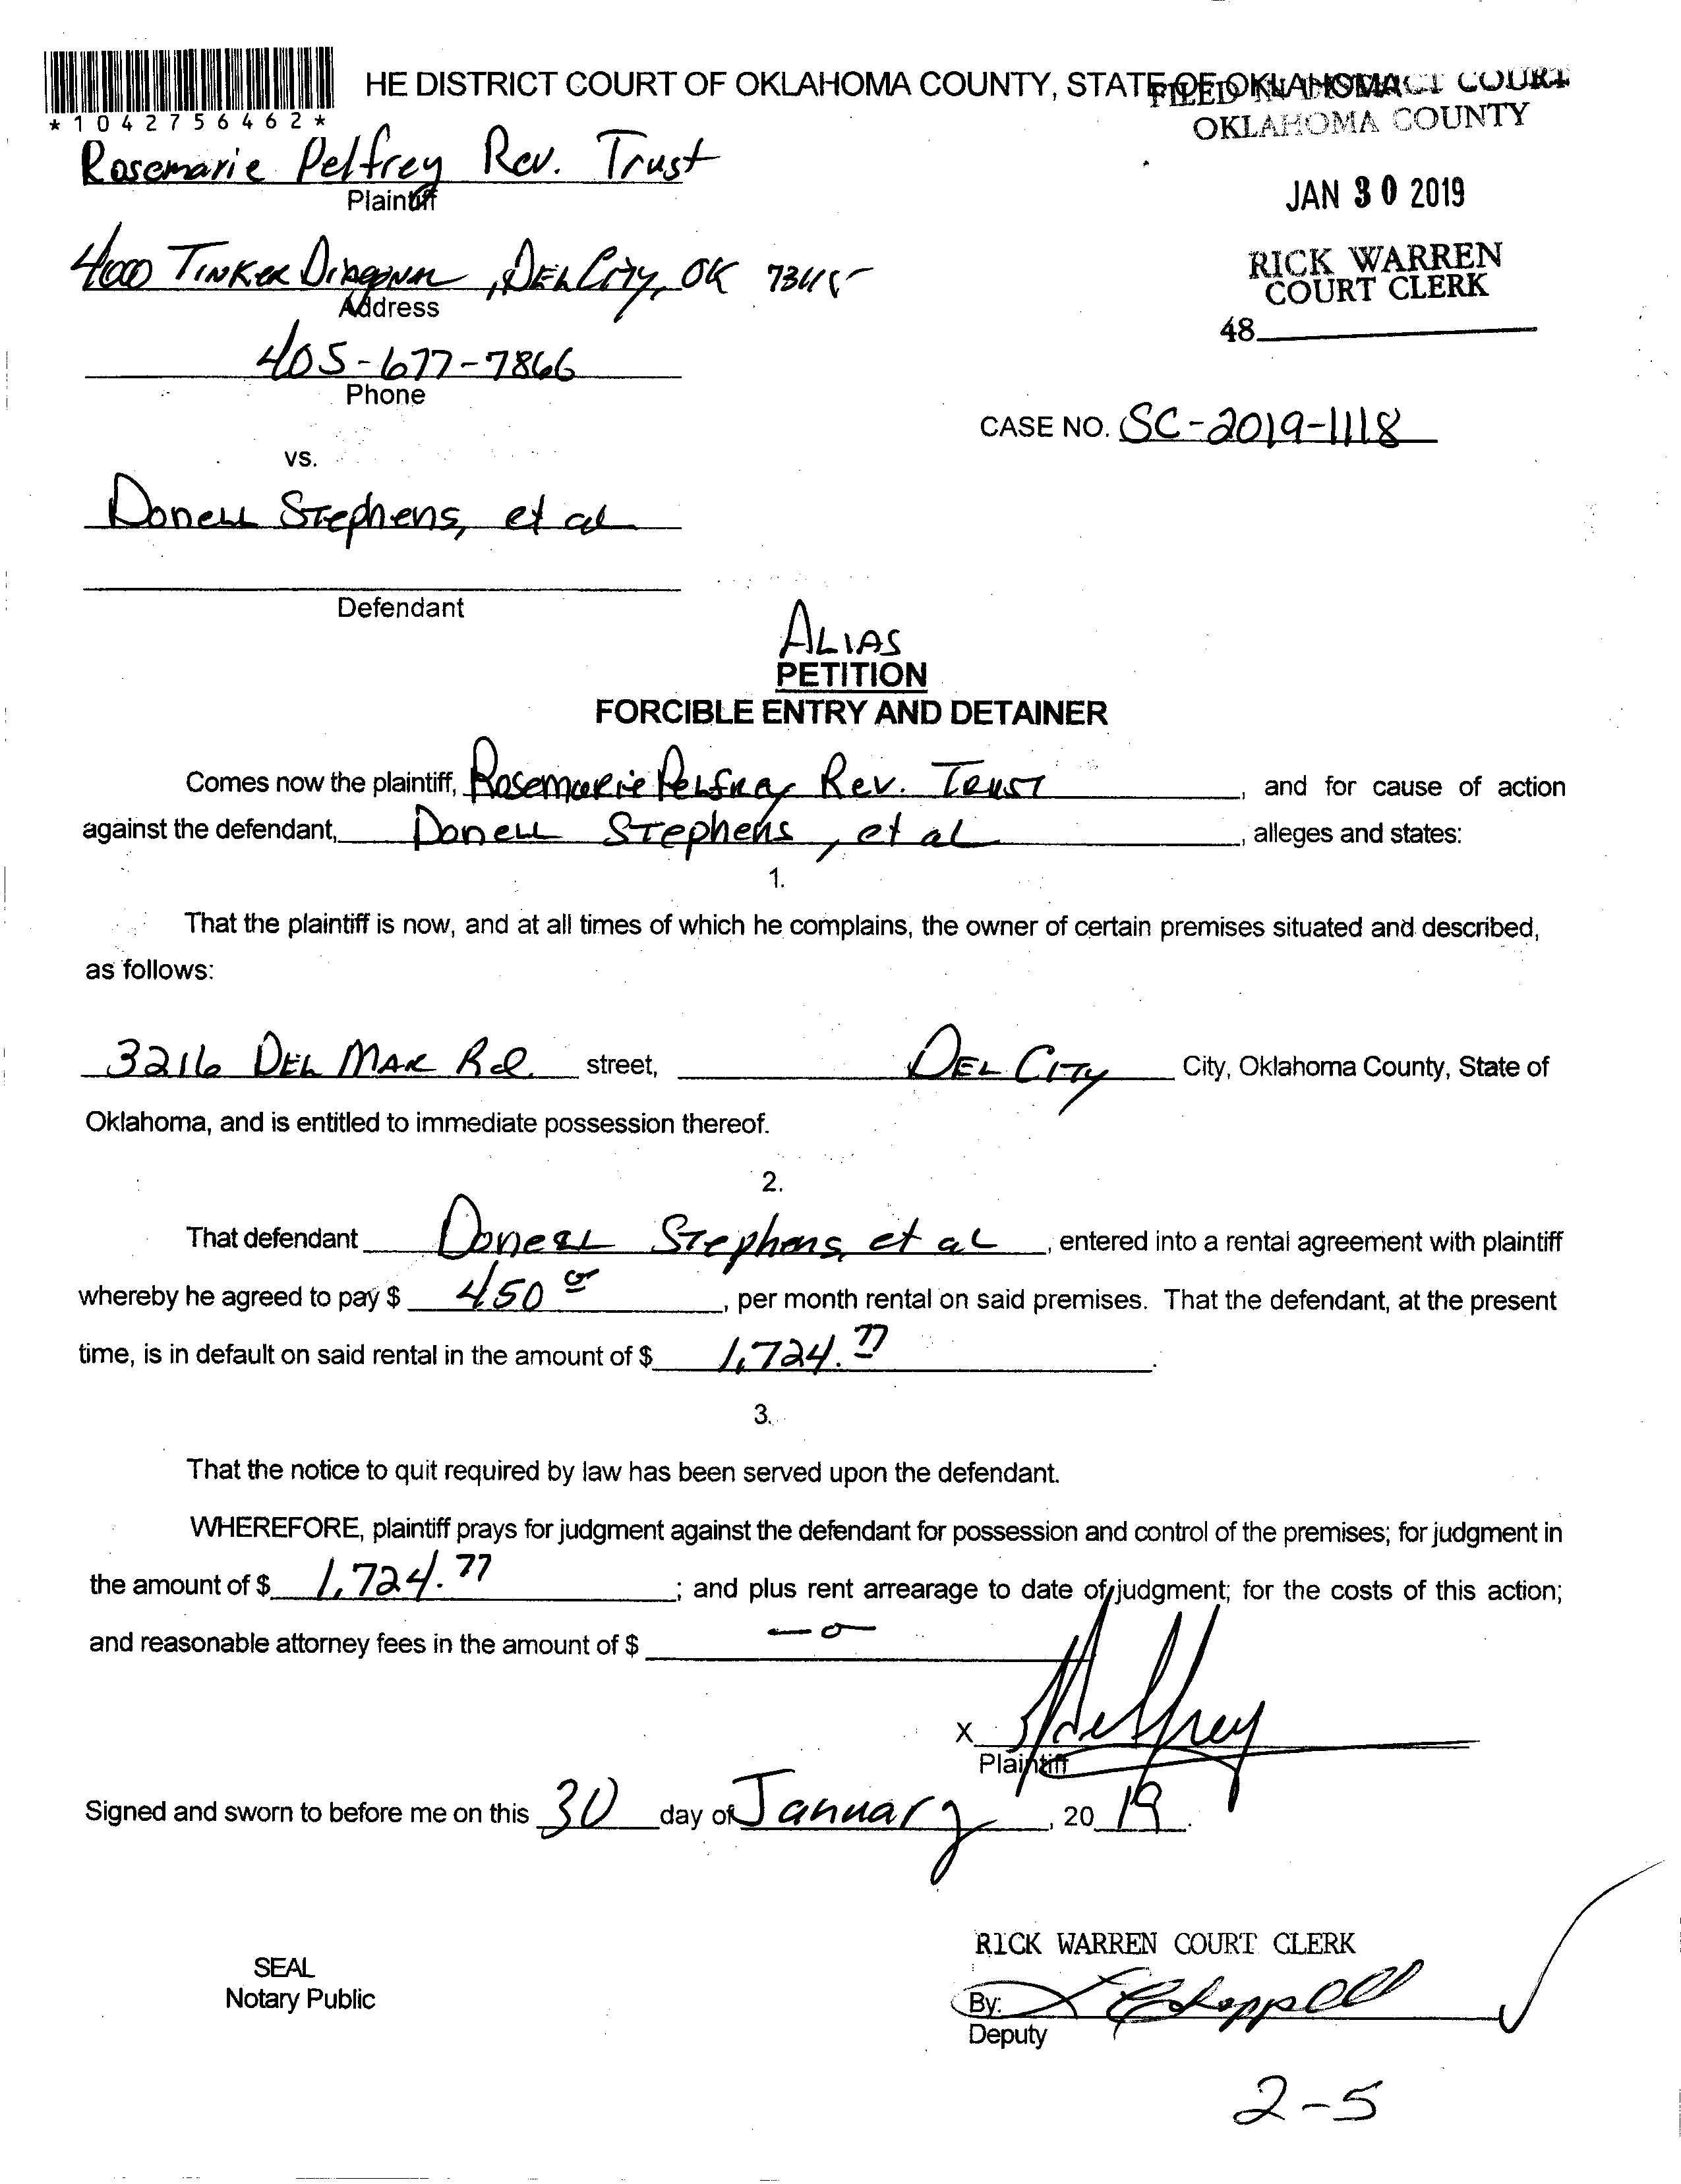 HE DISTRICT COURT OF OKLAHOMA COUNTY, STATE OF OKLAHOMA
FILED IN DISTRICT COURT
OKLAHOMA COUNTY
*1042756462*
Rosemarie Pelfrey Rev. Trust
Plaintiff
JAN 30 2019
4000 Tinker Diagonal, Del City, OK 73115
Address
RICK WARREN
COURT CLERK
48
405-677-7866
Phone
CASE NO. SC-2019-1118
vs.
Donell Stephens, et al
Defendant
ALIAS
PETITION
FORCIBLE ENTRY AND DETAINER
Comes now the plaintiff, Rosemarie Pelfrey Rev. Trust, and for cause of action
against the defendant, Donell Stephens, et al, alleges and states:
1.
That the plaintiff is now, and at all times of which he complains, the owner of certain premises situated and described,
as follows:
3216 Del Mar Rd street, Del City City, Oklahoma County, State of
Oklahoma, and is entitled to immediate possession thereof.
2.
That defendant Donell Stephens, et al, entered into a rental agreement with plaintiff
whereby he agreed to pay $ 450 00, per month rental on said premises. That the defendant, at the present
time, is in default on said rental in the amount of $ 1,724.77.
3.
That the notice to quit required by law has been served upon the defendant.
WHEREFORE, plaintiff prays for judgment against the defendant for possession and control of the premises; for judgment in
the amount of $ 1,724.77; and plus rent arrearage to date of judgment; for the costs of this action;
and reasonable attorney fees in the amount of $ -0-
X Pelfrey
Plaintiff
Signed and sworn to before me on this 30 day of January, 20 19.
RICK WARREN COURT CLERK
SEAL
Notary Public
By:
Deputy
2-5